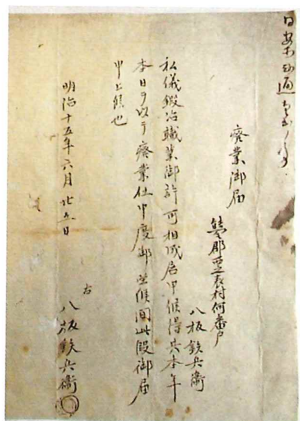 廃業御届
熊毛郡西之表村何番戸
八板鉄兵衛
私儀鍛冶職業御許可相成居申候得共本年
本日ヨリ以テ廃業仕申度御座候間此段御届
申上候也
明治十五年六月廿五日
右
八板鉄兵衛